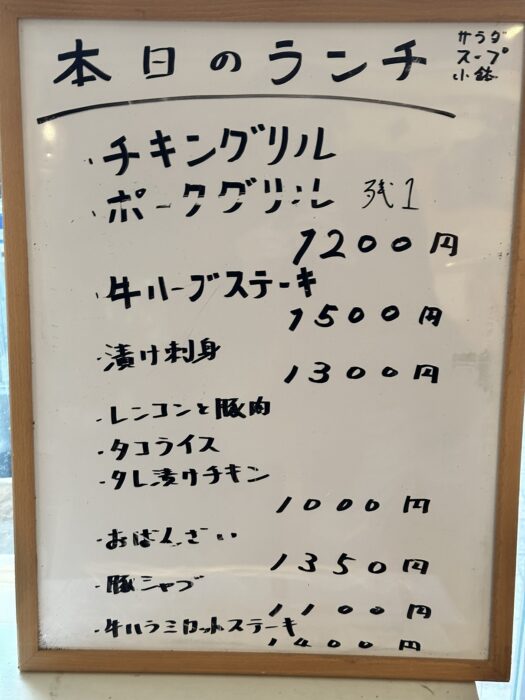 本日のランチ
サラダ
スープ
小鉢
・チキングリル
・ポークグリル 残1
1200円
・牛ハーブステーキ
1500円
・漬け刺身
1300円
・レンコンと豚肉
・タコライス
・タレ漬けチキン
1000円
・おばんざい
1350円
・豚シャブ
1100円
・牛ハラミカットステーキ
1400円